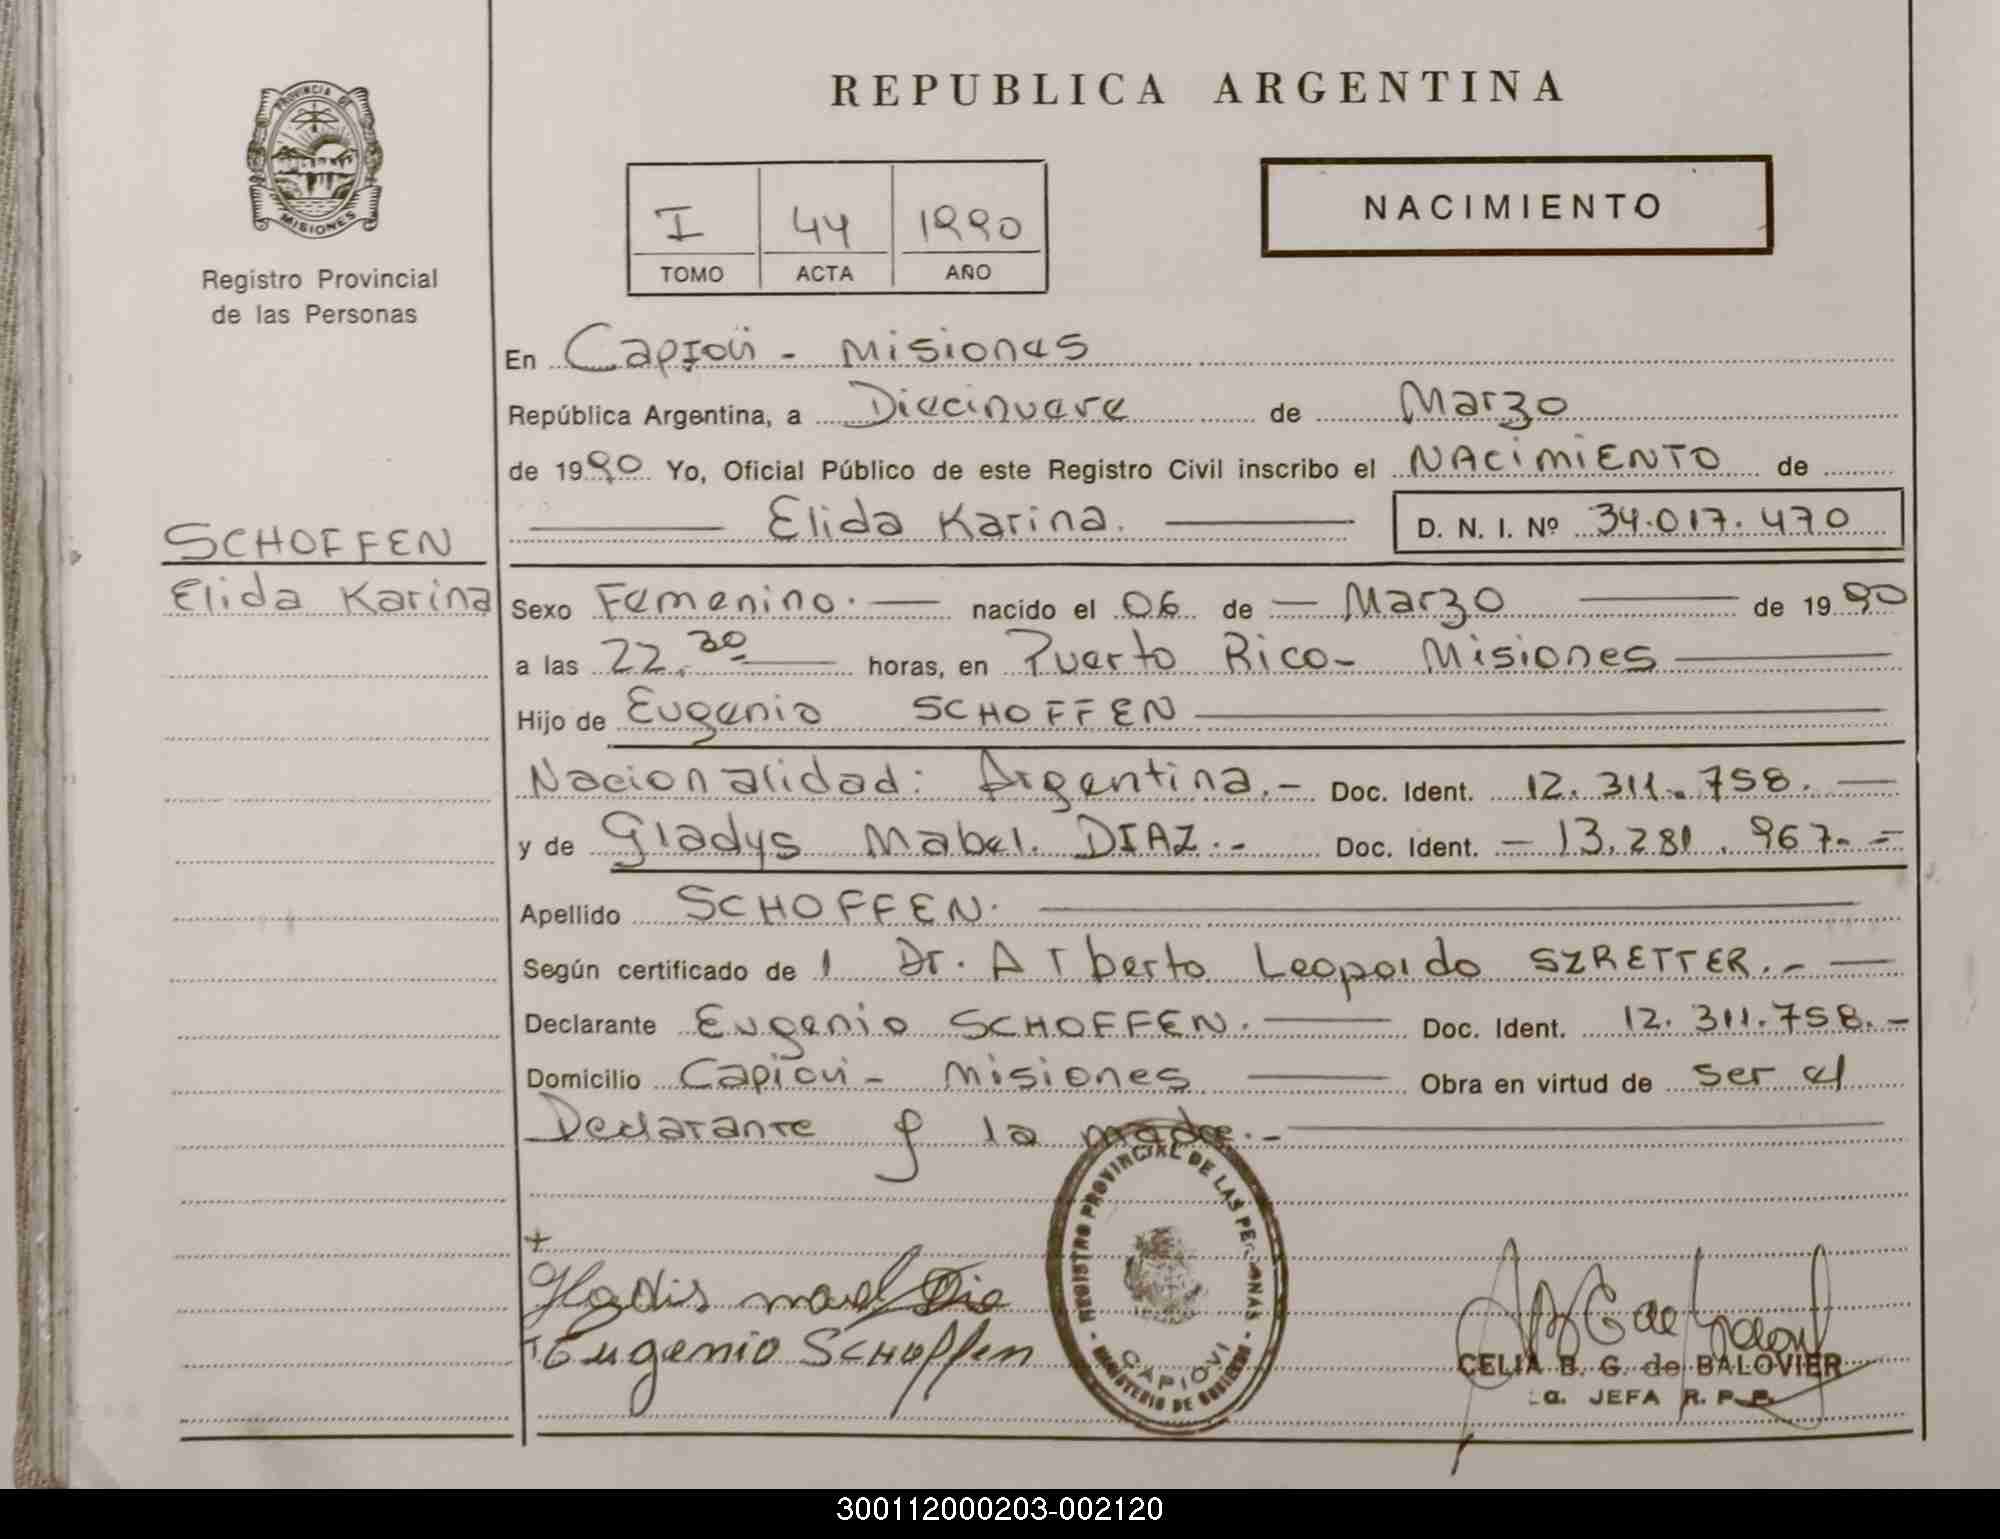 REPUBLICA ARGENTINA
PROVINCIA DE MISIONES
Registro Provincial
de las Personas
I 44 1990
TOMO ACTA AÑO
NACIMIENTO
En Capiovi - Misiones
República Argentina, a Diecinueve de Marzo
de 1990 Yo, Oficial Público de este Registro Civil inscribo el NACIMIENTO de
Elida Karina. D. N. I. Nº 34.017.470
SCHOFFEN
Elida Karina
Sexo Femenino. nacido el 06 de Marzo de 1990
a las 22.30 horas, en Puerto Rico - Misiones
Hijo de Eugenio SCHOFFEN
Nacionalidad: Argentina.- Doc. Ident. 12.311.758.
y de Gladys Mabel. DIAZ.- Doc. Ident. 13.281.967.-
Apellido SCHOFFEN.
Según certificado de l Dr. Alberto Leopoldo SZRETTER.-
Declarante Eugenio SCHOFFEN. Doc. Ident. 12.311.758.-
Domicilio Capiovi - Misiones Obra en virtud de ser el
Declarante y la madre.-
REGISTRO PROVINCIAL DE LAS PERSONAS
CAPIOVI
MINISTERIO DE GOBIERNO
Eugenio SCHOFFEN
CELIA B. G. de BALOVIER
JEFA R. P. P.
300112000203-002120